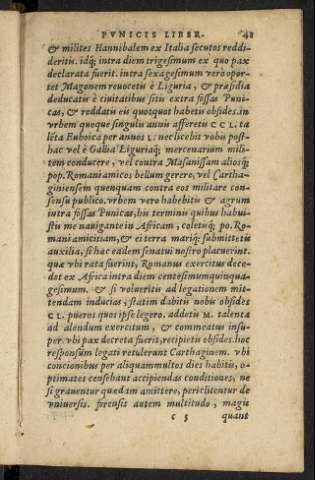 PVNICIS LIBER. 41
& milites Hannibalem ex Italia secutos reddi-
deritis. idq; intra diem trigesimum ex quo pax
declarata fuerit. intra sexagesimum verò opor-
tet Magonem reuocetis è Liguria, & præsidia
deducatis è ciuitatibus sitis extra fossas Puni-
cas, & reddatis eis quotquot habetis obsides. in
vrbem quoque singulis annis afferetis CCL. ta
lẽta Euboica per annos L. nec licebit vobis post-
hac vel è Gallia Liguriaq; mercenarium mili-
tem conducere, vel contra Masanissam aliosq;
pop. Romani amicos bellum gerere, vel Cartha-
giniensem quenquam contra eos militare con-
sensu publico. vrbem vero habebitis & agrum
intra fossas Punicas, his terminis quibus habui-
stis me nauigante in Africam, coletisq; po. Ro-
mani amicitiam, & ei terra mariq; submittetis
auxilia, si hæc eadem senatui nostro placuerint.
quæ vbi rata fuerint, Romanus exercitus dece-
det ex Africa intra diem centesimumquinqua-
gesimum. & si volueritis ad legationem mit-
tendam inducias, statim dabitis nobis obsides
CL. pueros quos ipse legero. addetis M. talenta
ad alendum exercitum, & commeatus insu-
per. vbi pax decreta fuerit, recipietis obsides. hoc
responsum legati retulerunt Carthaginem. vbi
concionibus per aliquammultos dies habitis, o-
ptimates censebant accipiendas conditiones, ne
si grauentur quædam amittere, periclitentur de
vniuersis. forensis autem multitudo, magis
c 5 quans